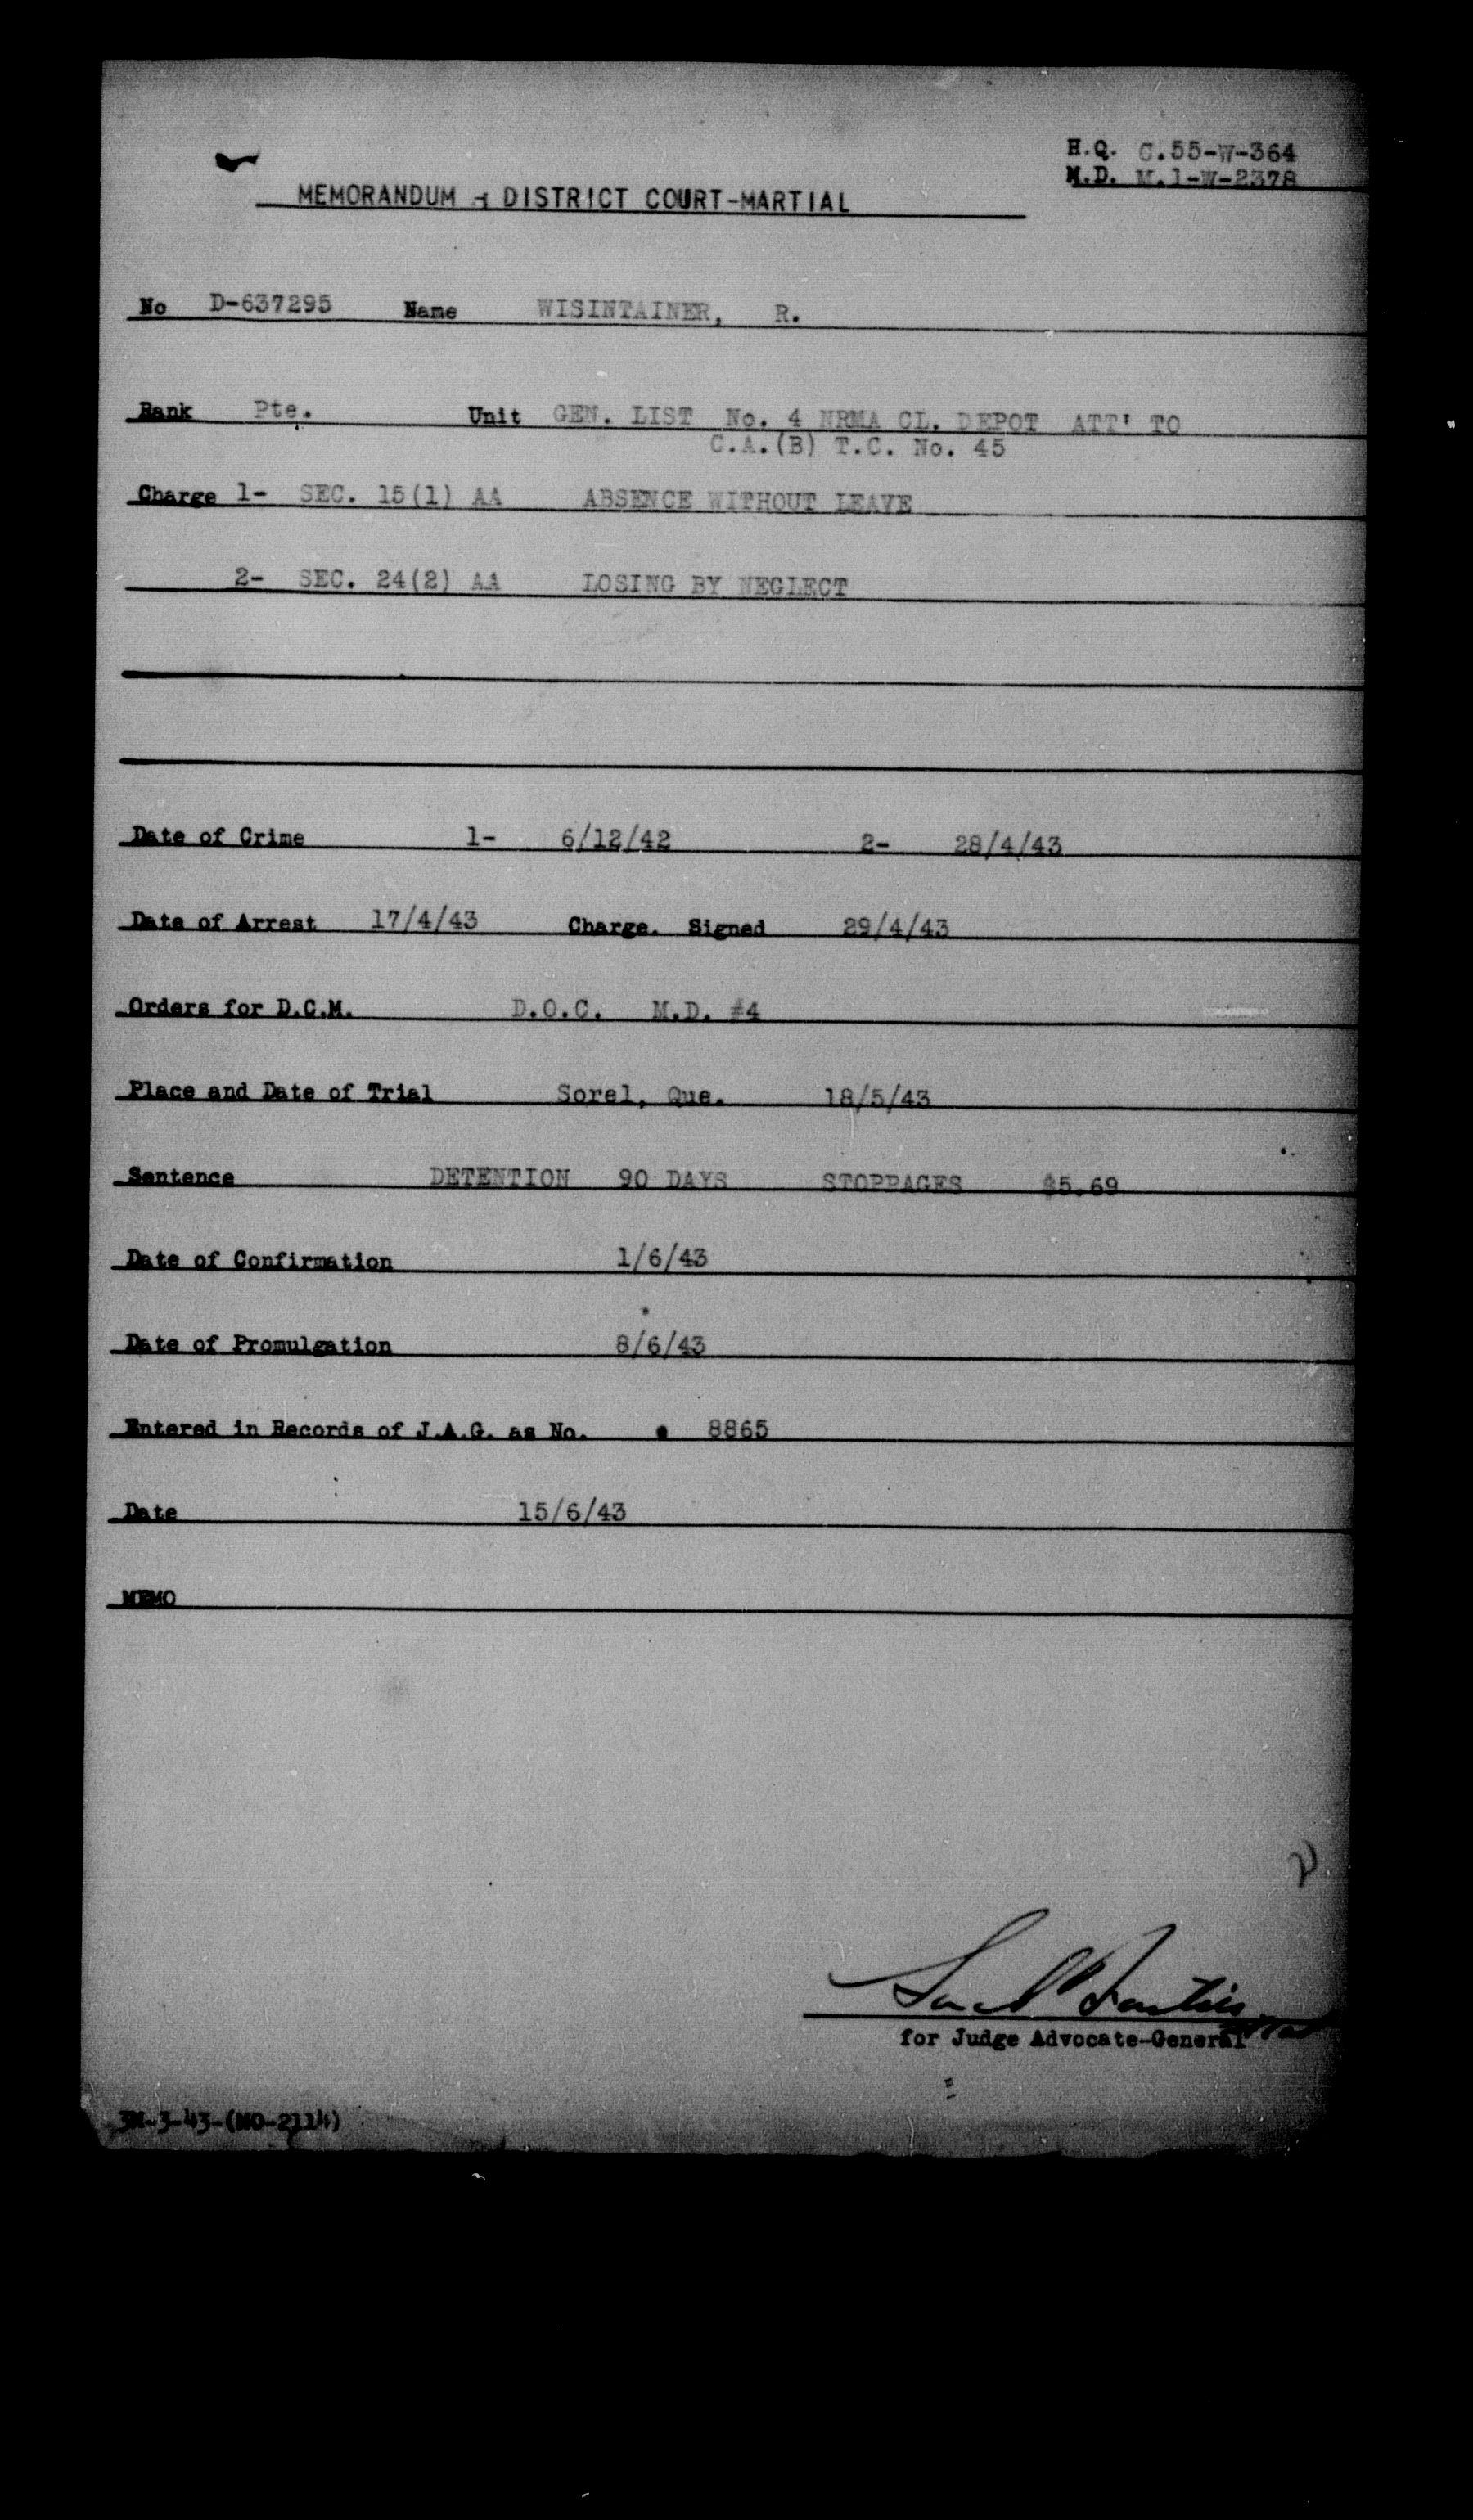 H.Q. C.55-W-364
M.D. M.1-W-2378
MEMORANDUM - DISTRICT COURT-MARTIAL
No D-637295 Name WISINTAINER, R.
Rank Pte. Unit GEN. LIST No. 4 NRMA CL. DEPOT ATT' TO
C.A.(B) T.C. No. 45
Charge 1- SEC. 15(1) AA ABSENCE WITHOUT LEAVE
2- SEC. 24(2) AA LOSING BY NEGLECT
Date of Crime 1- 6/12/42 2- 28/4/43
Date of Arrest 17/4/43 Charge. Signed 29/4/43
Orders for D.C.M. D.O.C. M.D. #4
Place and Date of Trial Sorel, Que. 18/5/43
Sentence DETENTION 90 DAYS STOPPAGES $5.69
Date of Confirmation 1/6/43
Date of Promulgation 8/6/43
Entered in Records of J.A.G. as No. 8865
Date 15/6/43
MEMO
for Judge Advocate-General
3M-3-43-(MO-2114)